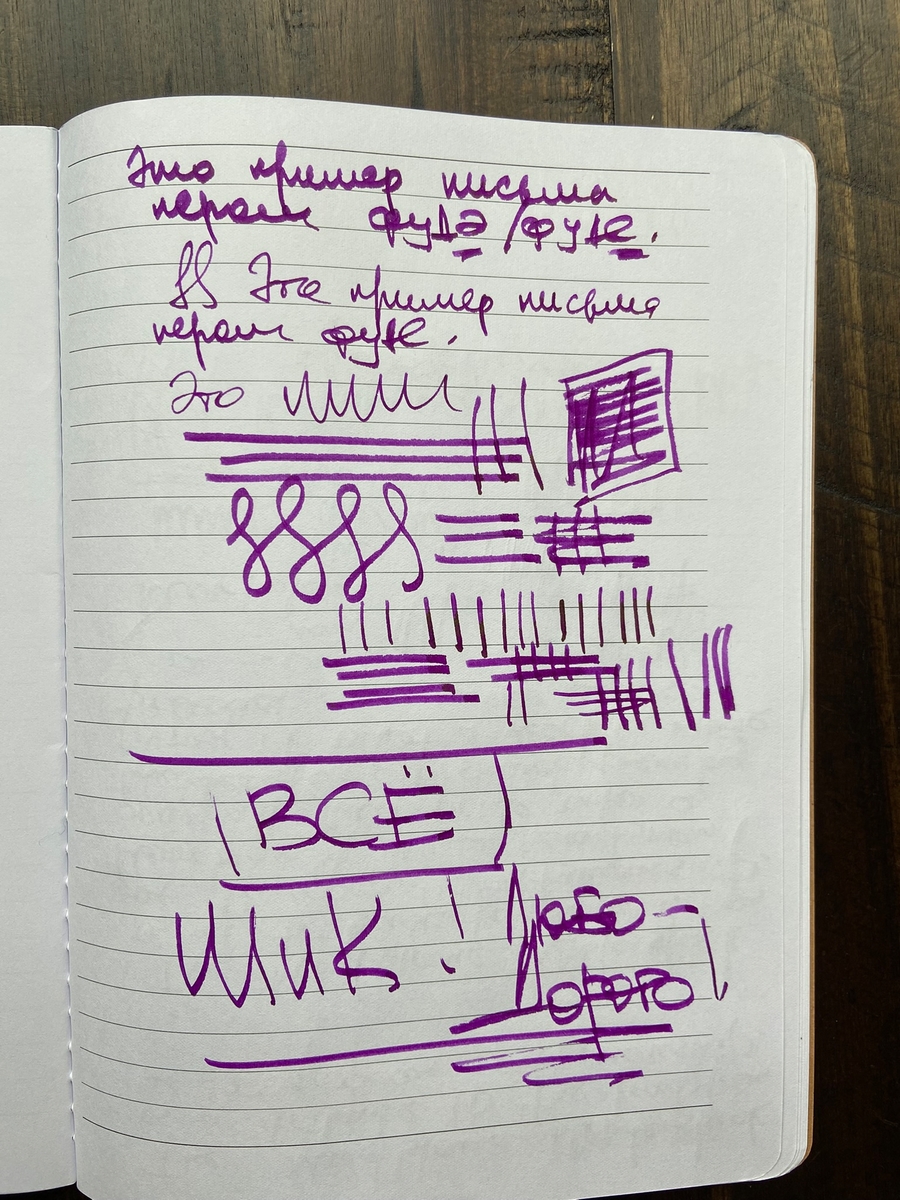 Это пример письма
пером фудэ/фуде.
Это пример письма
пером фуде.
Это
ВСЁ
ШиК! Любо-
Дорого